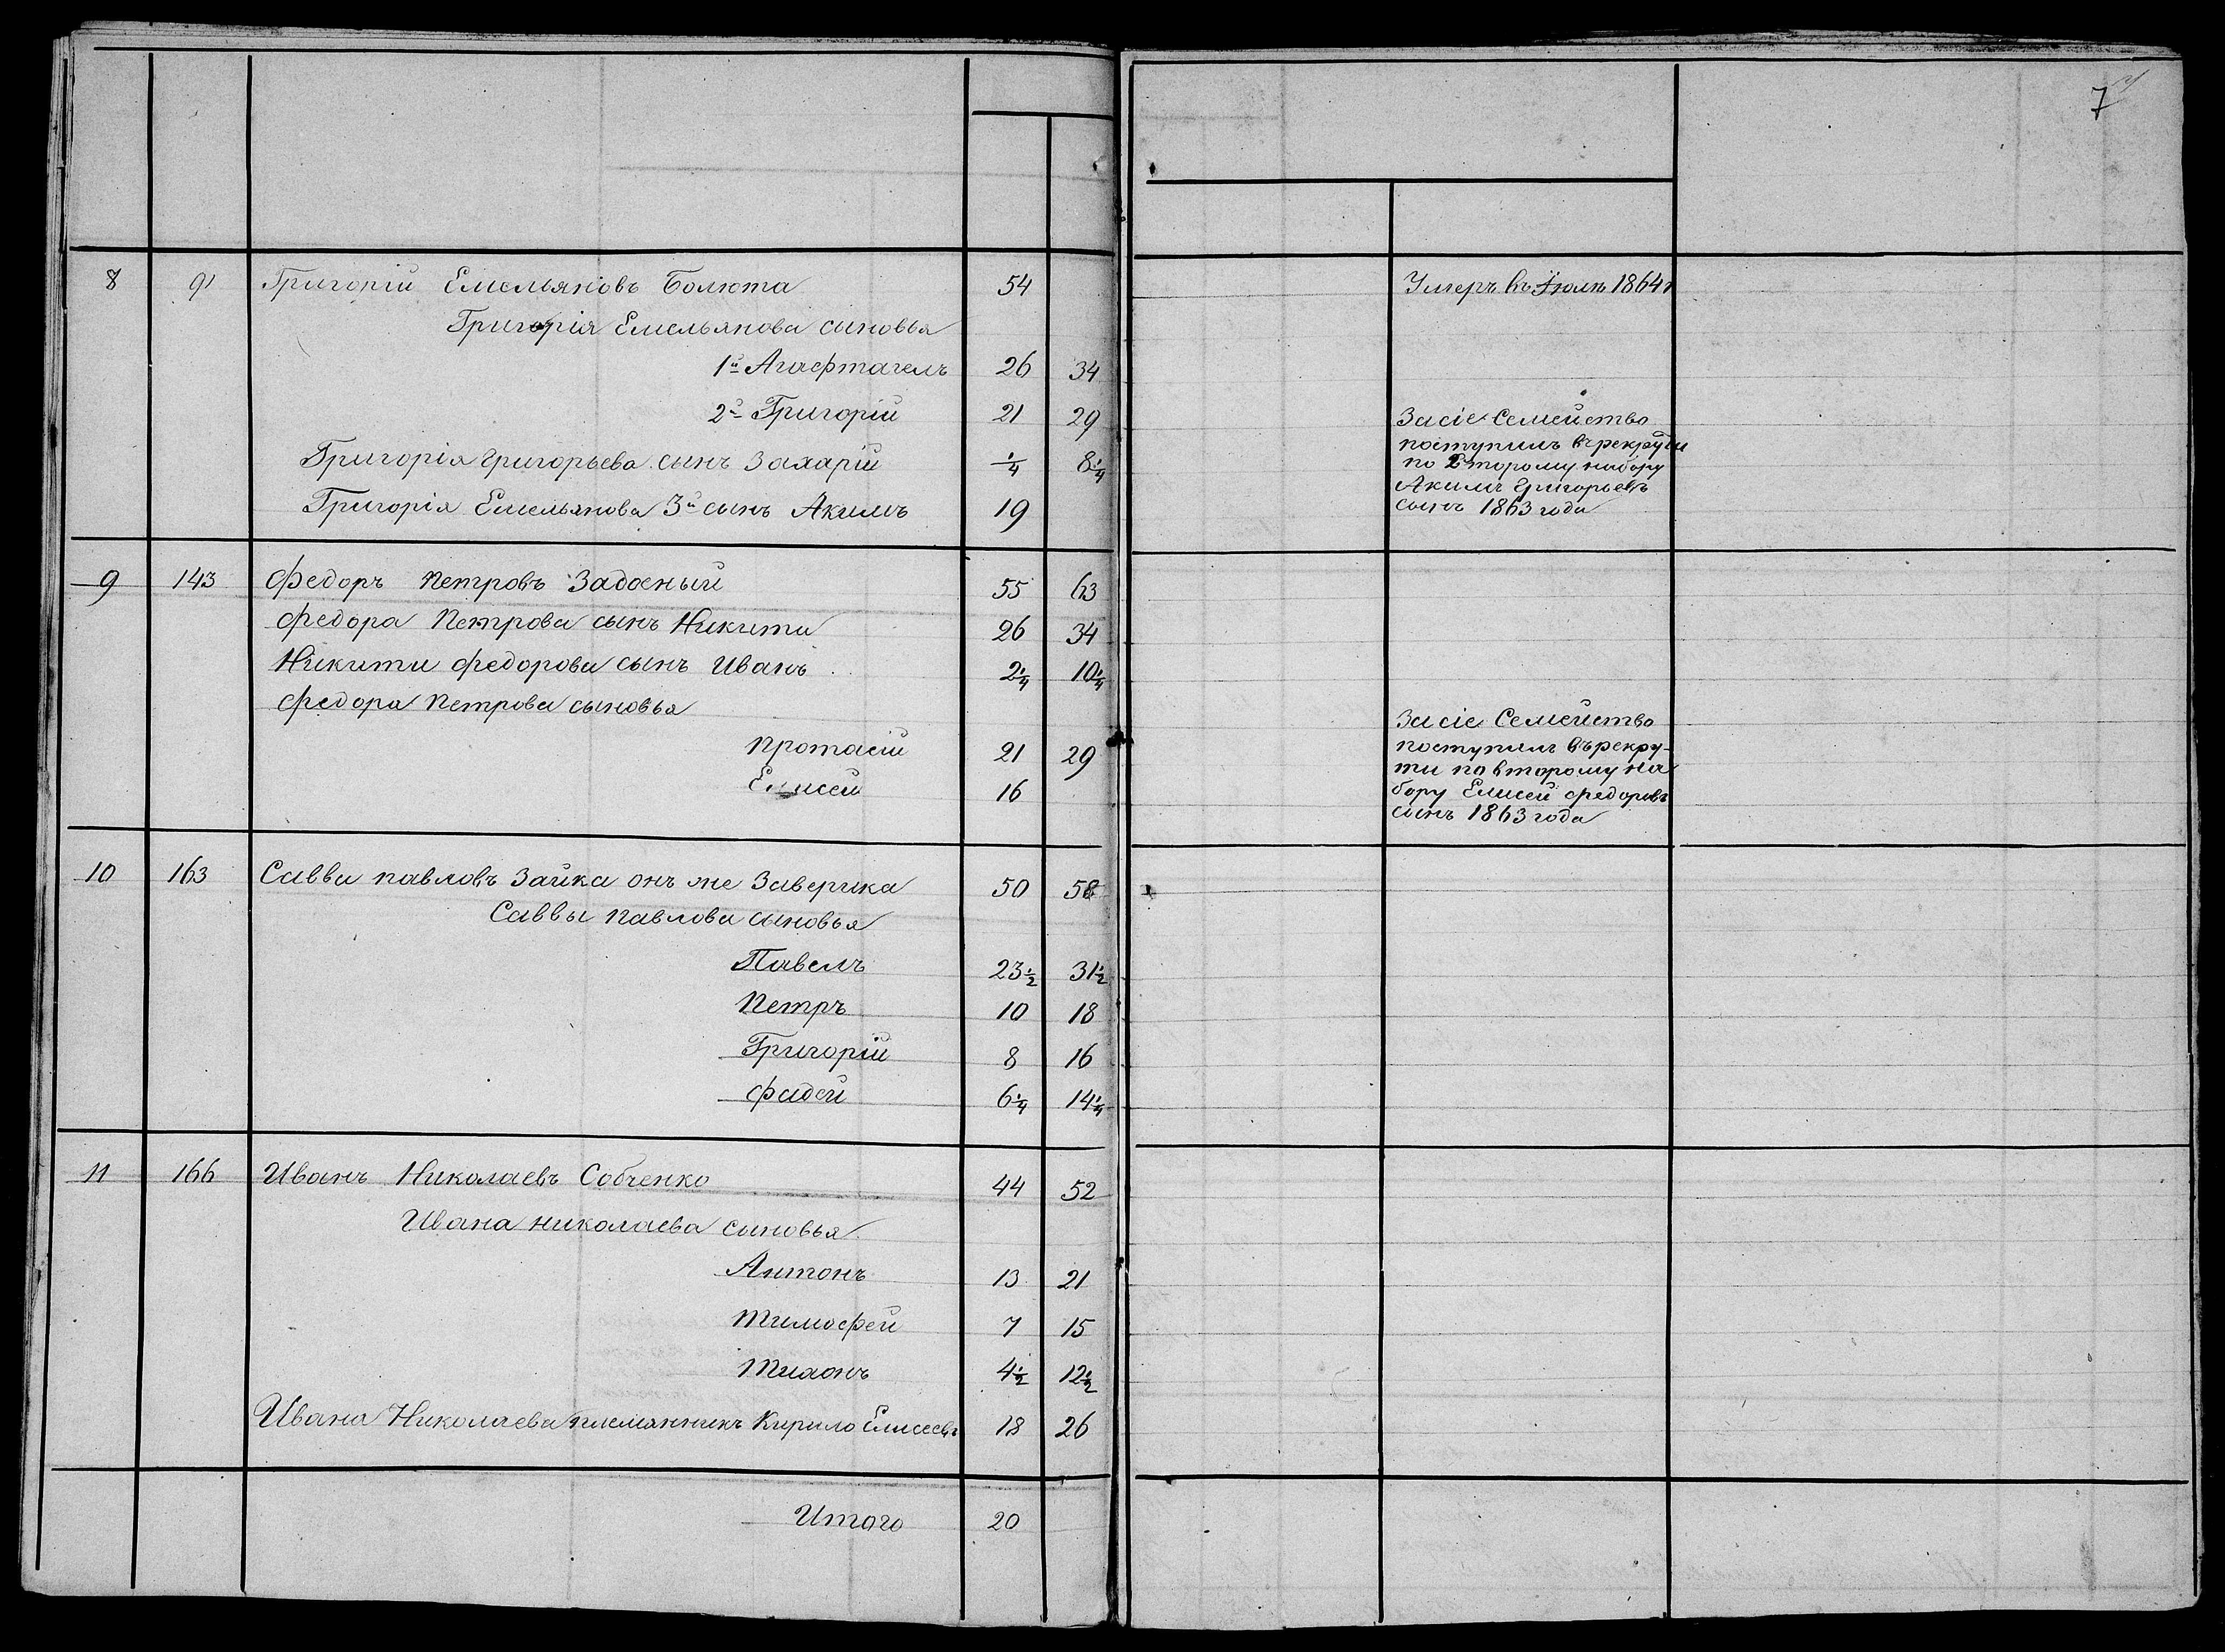 7
8 91 Григорій Емельяновъ Болюта 54 Умеръ въ Іюлѣ 1864 г
Григорія Емельянова сыновья
1й Агафтагелъ 26 34
2й Григорій 21 29
Григорія Григорьева сынъ Захарій 1/4 8 1/4
Григорія Емельянова 3й сынъ Акимъ 19
За сіе Семейство
поступилъ въ рекруты
по 2второму набору
Акимъ Григорьевъ
сынъ 1863 года
9 143 Федоръ Петровъ Задоеный 55 63
Федора Петрова сынъ Никита 26 34
Никиты Федорова сынъ Иванъ 2 1/4 10 1/4
Федора Петрова сыновья
Протасій 21 29
Елисей 16
За сіе Семейство
поступилъ въ рекру-
ты по второму на
бору Елисей Федоровъ
сынъ 1863 года
10 163 Савва Павловъ Зайка онъ же Заверика 50 58
Саввы Павлова сыновья
Павелъ 23 1/2 31 1/2
Петръ 10 18
Григорій 8 16
Фадей 6 1/4 14 1/4
11 166 Иванъ Николаевъ Собченко 44 52
Ивана Николаева сыновья
Антонъ 13 21
Тимофей 7 15
Тихонъ 4 1/2 12 1/2
Ивана Николаева племянникъ Кирило Елисеевъ 18 26
Итого 20